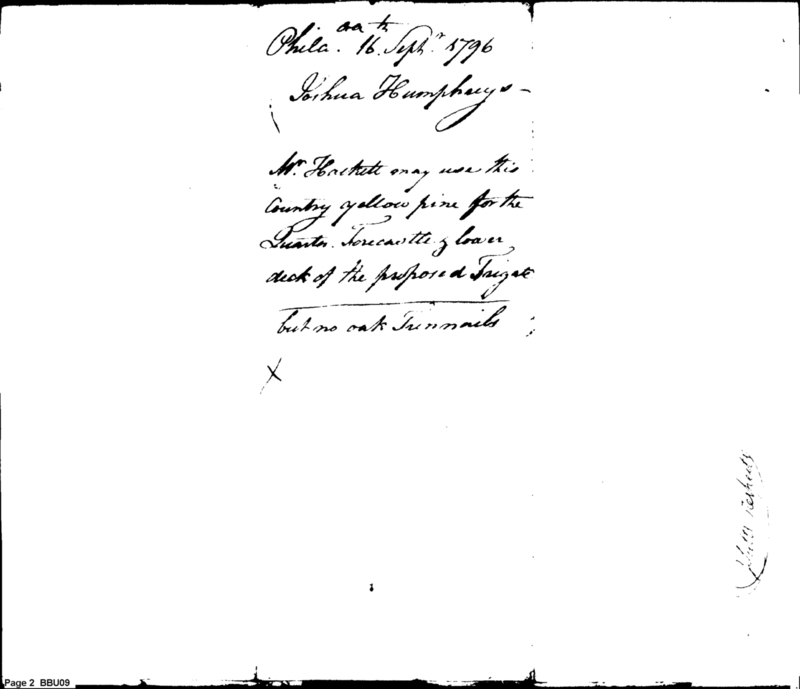 Phila. 16th Sepr. 1796
Joshua Humphreys -
Mr. Hackett may use this
Country yellow pine for the
Quarter. Forecastle & lower
deck of the proposed Frigate
but no oak Trunnails
X
Page 2 BBU09